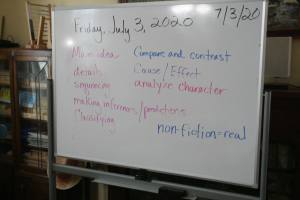 Friday, July 3, 2020 7/3/20
Main idea Compare and contrast
details Cause/Effect
sequencing analyze character
making inferences/predictions
Classifying
non-fiction=real